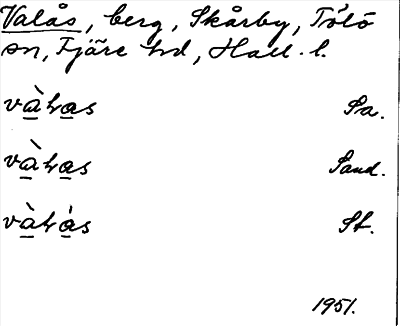 Valås, berg, Skårby, Tölö
sn, Fjäre hd, Hall. l.
vàƚas Sa.
vàƚas Sand.
vàƚás St.
1951.